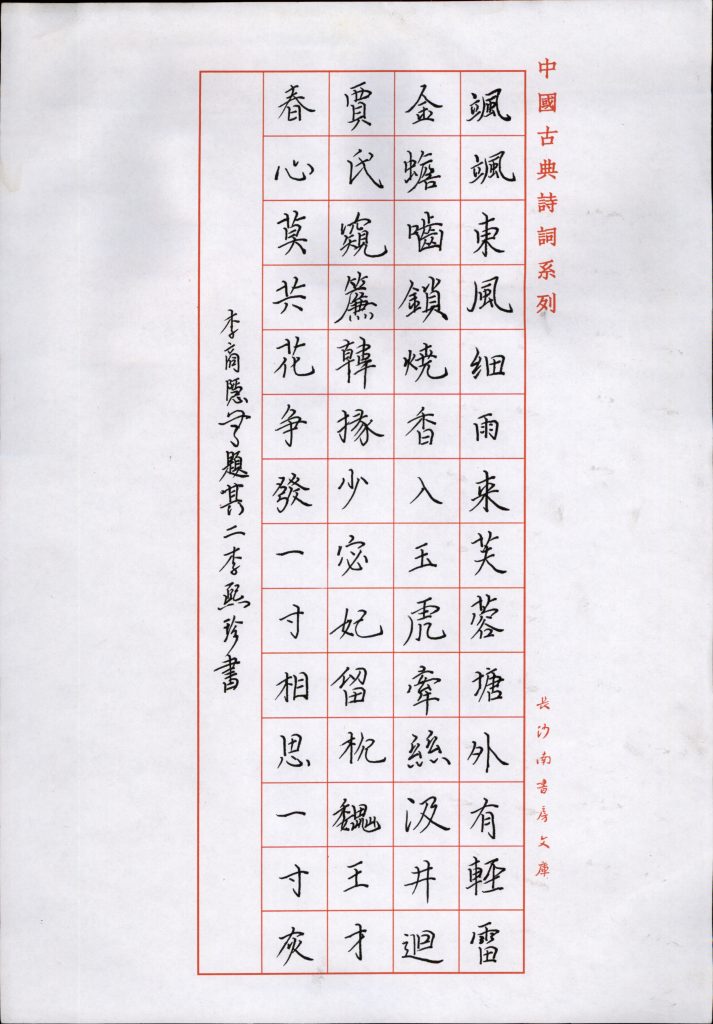 中國古典詩詞系列
長沙南書房文庫
颯颯東風細雨來芙蓉塘外有輕雷
金蟾嚙鎖燒香入玉虎牽絲汲井迴
賈氏窺簾韓掾少宓妃留枕魏王才
春心莫共花爭發一寸相思一寸灰
李商隱無題其二李熙珍書